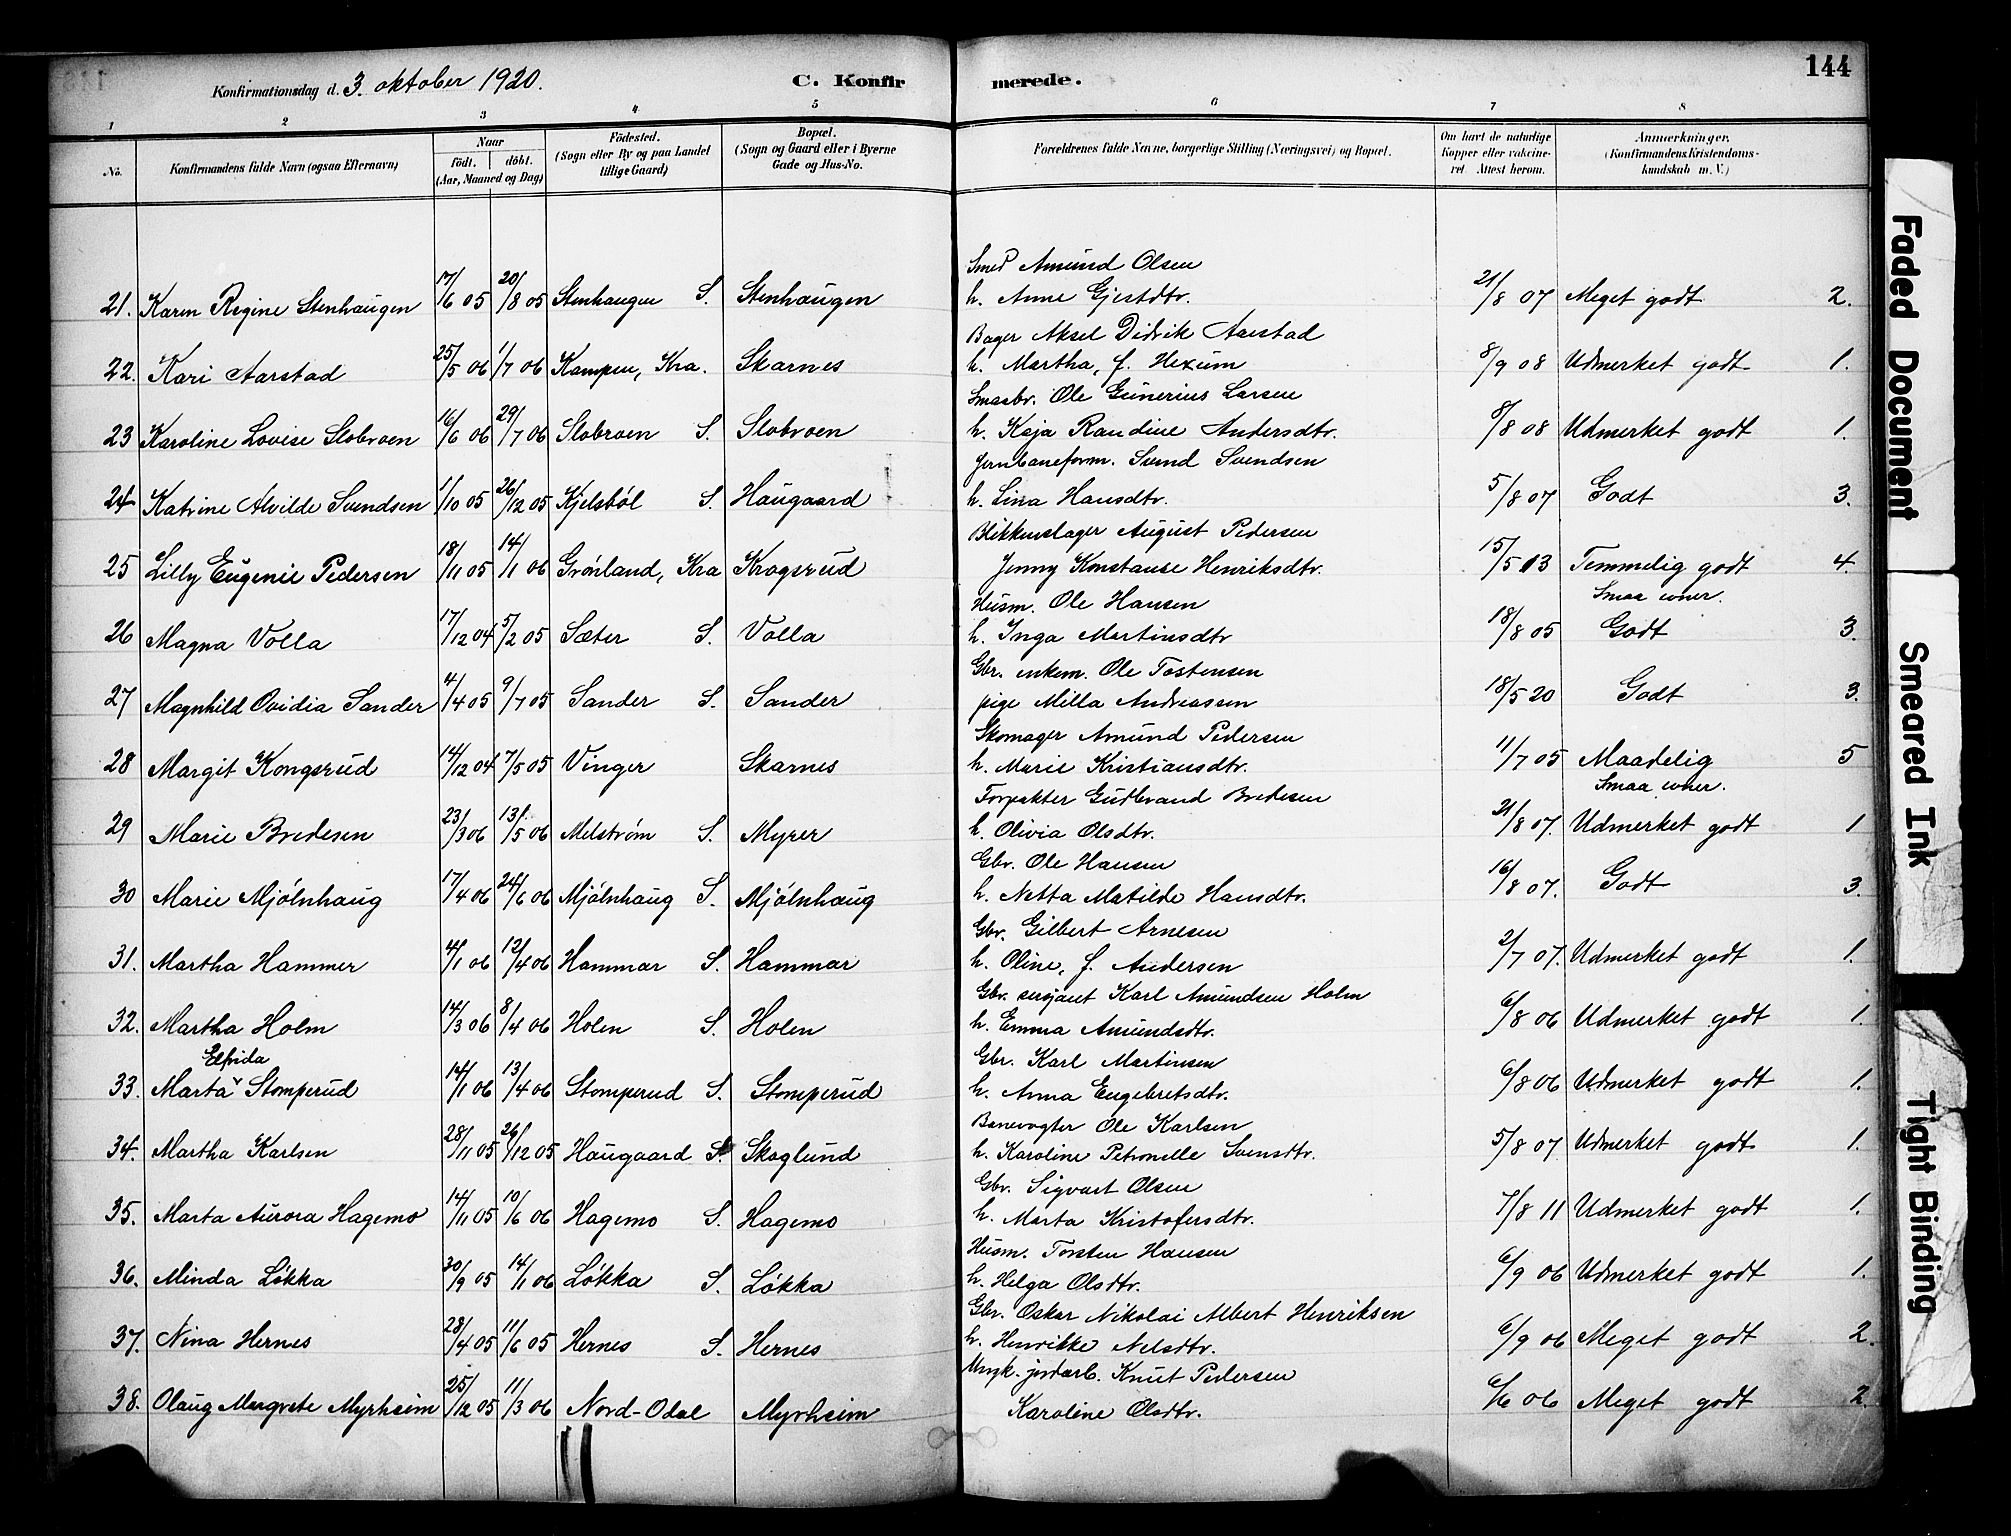 144
Konfirmationsdag d. 3. oktober 1920. C. Konfirmerede.
1 2 3 4 5 6 7 8
No. Konfirmandens fulde Navn (ogsaa Efternavn) Naar födt. döbt. (Aar, Maaned og Dag) Födested. (Sogn eller By og paa Landet tillige Gaard) Bopæl. (Sogn og Gaard eller i Byerne Gade og Hus-No. Forældrenes fulde Navne, borgerlige Stilling (Næringsvei) og Bopæl. Om havt de naturlige Kopper eller vakcineret. Attest herom. Anmærkninger. (Konfirmandens Kristendomskundskab m. V.)
Smed Amund Olsen
21. Karen Regine Stenhaugen 17/6 05 20/8 05 Stenhaugen S. Stenhaugen h. Anne Gjestdtr. 21/8 07 Meget godt 2.
Bager Aksel Didrik Aarstad
22. Kari Aarstad 25/5 06 1/7 06 Kampen, Kra. Skarnes h. Martha, f. Hexum 8/9 08 Udmerket godt 1.
Smaabr. Ole Gunerius Larsen
23 Karoline Lovise Slobroen 16/6 06 29/7 06 Slobroen S. Slobroen h. Kaja Randine Andersdtr. 8/8 08 Udmerket godt 1.
Jernbaneform. Svend Svendsen
24 Katrine Alvilde Svendsen 1/10 05 26/12 05 Kjelsböl S. Haugaard h. Lina Hansdtr. 5/8 07 Godt 3.
Blikkenslager August Pedersen
25 Lilly Eugenie Pedersen 18/11 05 14/1 06 Grönland, Kra Krogsrud Jenny Konstanse Henriksdtr. 15/5 13 Temmelig godt 4.
Smaa evner.
Husm. Ole Hansen
26 Magna Volla 17/12 04 5/2 05 Sæter S. Volla h. Inga Martinsdtr 18/8 05 Godt 3.
Gbr. enkem. Ole Tostensen
27 Magnhild Ovidia Sander 4/4 05 9/7 05 Sander S. Sander pige Milla Andreassen 18/5 20 Godt 3.
Skomager Amund Pedersen
28 Margit Kongsrud 14/12 04 7/5 05 Vinger Skarnes h. Marie Kristiansdtr. 11/7 05 Maadelig 5
Smaa evner.
Forpakter Gudbrand Bredesen
29 Marie Bredesen 23/3 06 13/5 06 Melström S. Myrer h. Olivia Olsdtr. 21/8 07. Udmerket godt 1
Gbr. Ole Hansen
30 Marie Mjölnhaug 17/4 06 24/6 06 Mjölnhaug S. Mjölnhaug h. Netta Matilde Hansdtr. 16/8 07. Godt 3.
Gbr. Gilbert Arnesen
31. Martha Hammer 4/1 06 12/4 06 Hammar S. Hammar h. Oline, f. Andersen 2/7 07. Udmerket godt 1.
Gbr. sersjant Karl Amundsen Holm
32. Martha Holm 14/3 06 8/4 06 Holen S. Holen h. Emma Amundsdtr. 6/8 06 Udmerket godt 1.
Elfrida
Gbr. Karl Martinsen
33. Marta Stomperud 14/1 06 13/4 06 Stomperud S. Stomperud h. Anna Engebretsdtr. 6/8 06 Udmerket godt 1.
Banevogter Ole Karlsen
34. Martha Karlsen 28/11 05 26/12 05 Haugaard S. Skoglund h. Karoline Petronelle Svensdtr. 5/8 07 Udmerket godt 1.
Gbr. Sigvart Olsen
35. Marta Aurora Hagemo 14/11 05 10/6 06 Hagemo S. Hagemo h. Marta Kristofersdtr. 7/8 11 Udmerket godt 1.
Husm. Torsten Hansen
36. Minda Lökka 20/9 05 14/1 06 Lökka S. Lökka h. Helga Olsdtr. 6/9 06 Udmerket godt 1.
Gbr. Oskar Nikolai Albert Henriksen
37. Nina Hernes 28/4 05 11/6 05 Hernes S. Hernes h. Henrikke Nelsdtr. 6/9 06 Meget godt 2.
Ungk. jordarb. Knut Pedersen
38. Olaug Margrete Myrheim 25/12 05 11/3 06 Nord-Odal Myrheim Karoline Olsdtr. 6/6 06 Meget godt 2.
Faded Document
Smeared Ink
Tight Binding